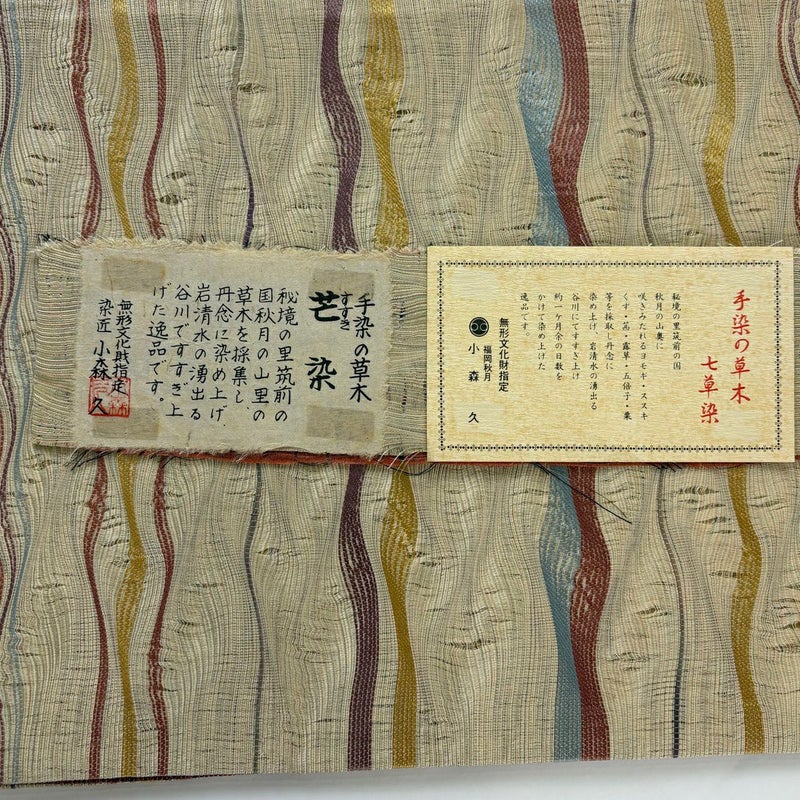 手染の草木
すすき
芒染
秘境の里筑前の
国秋月の山里の
草木を採集し、
丹念に染め上げ、
岩清水の湧出る
谷川ですすぎ上
げた逸品です。
無形文化財指定
染匠 小森 久
手染の草木
七草染
秘境の里筑前の国
秋月の山奥に
咲きみだれるヨモキ・ススキ
くず・茜・露草・五倍子・栗
等を採取し丹念に
染め上げ、岩清水の湧出る
谷川にてすすぎ上げ
約一ヶ月余の日数を
かけて染め上げた
逸品です。
無形文化財指定
福岡秋月
小森 久